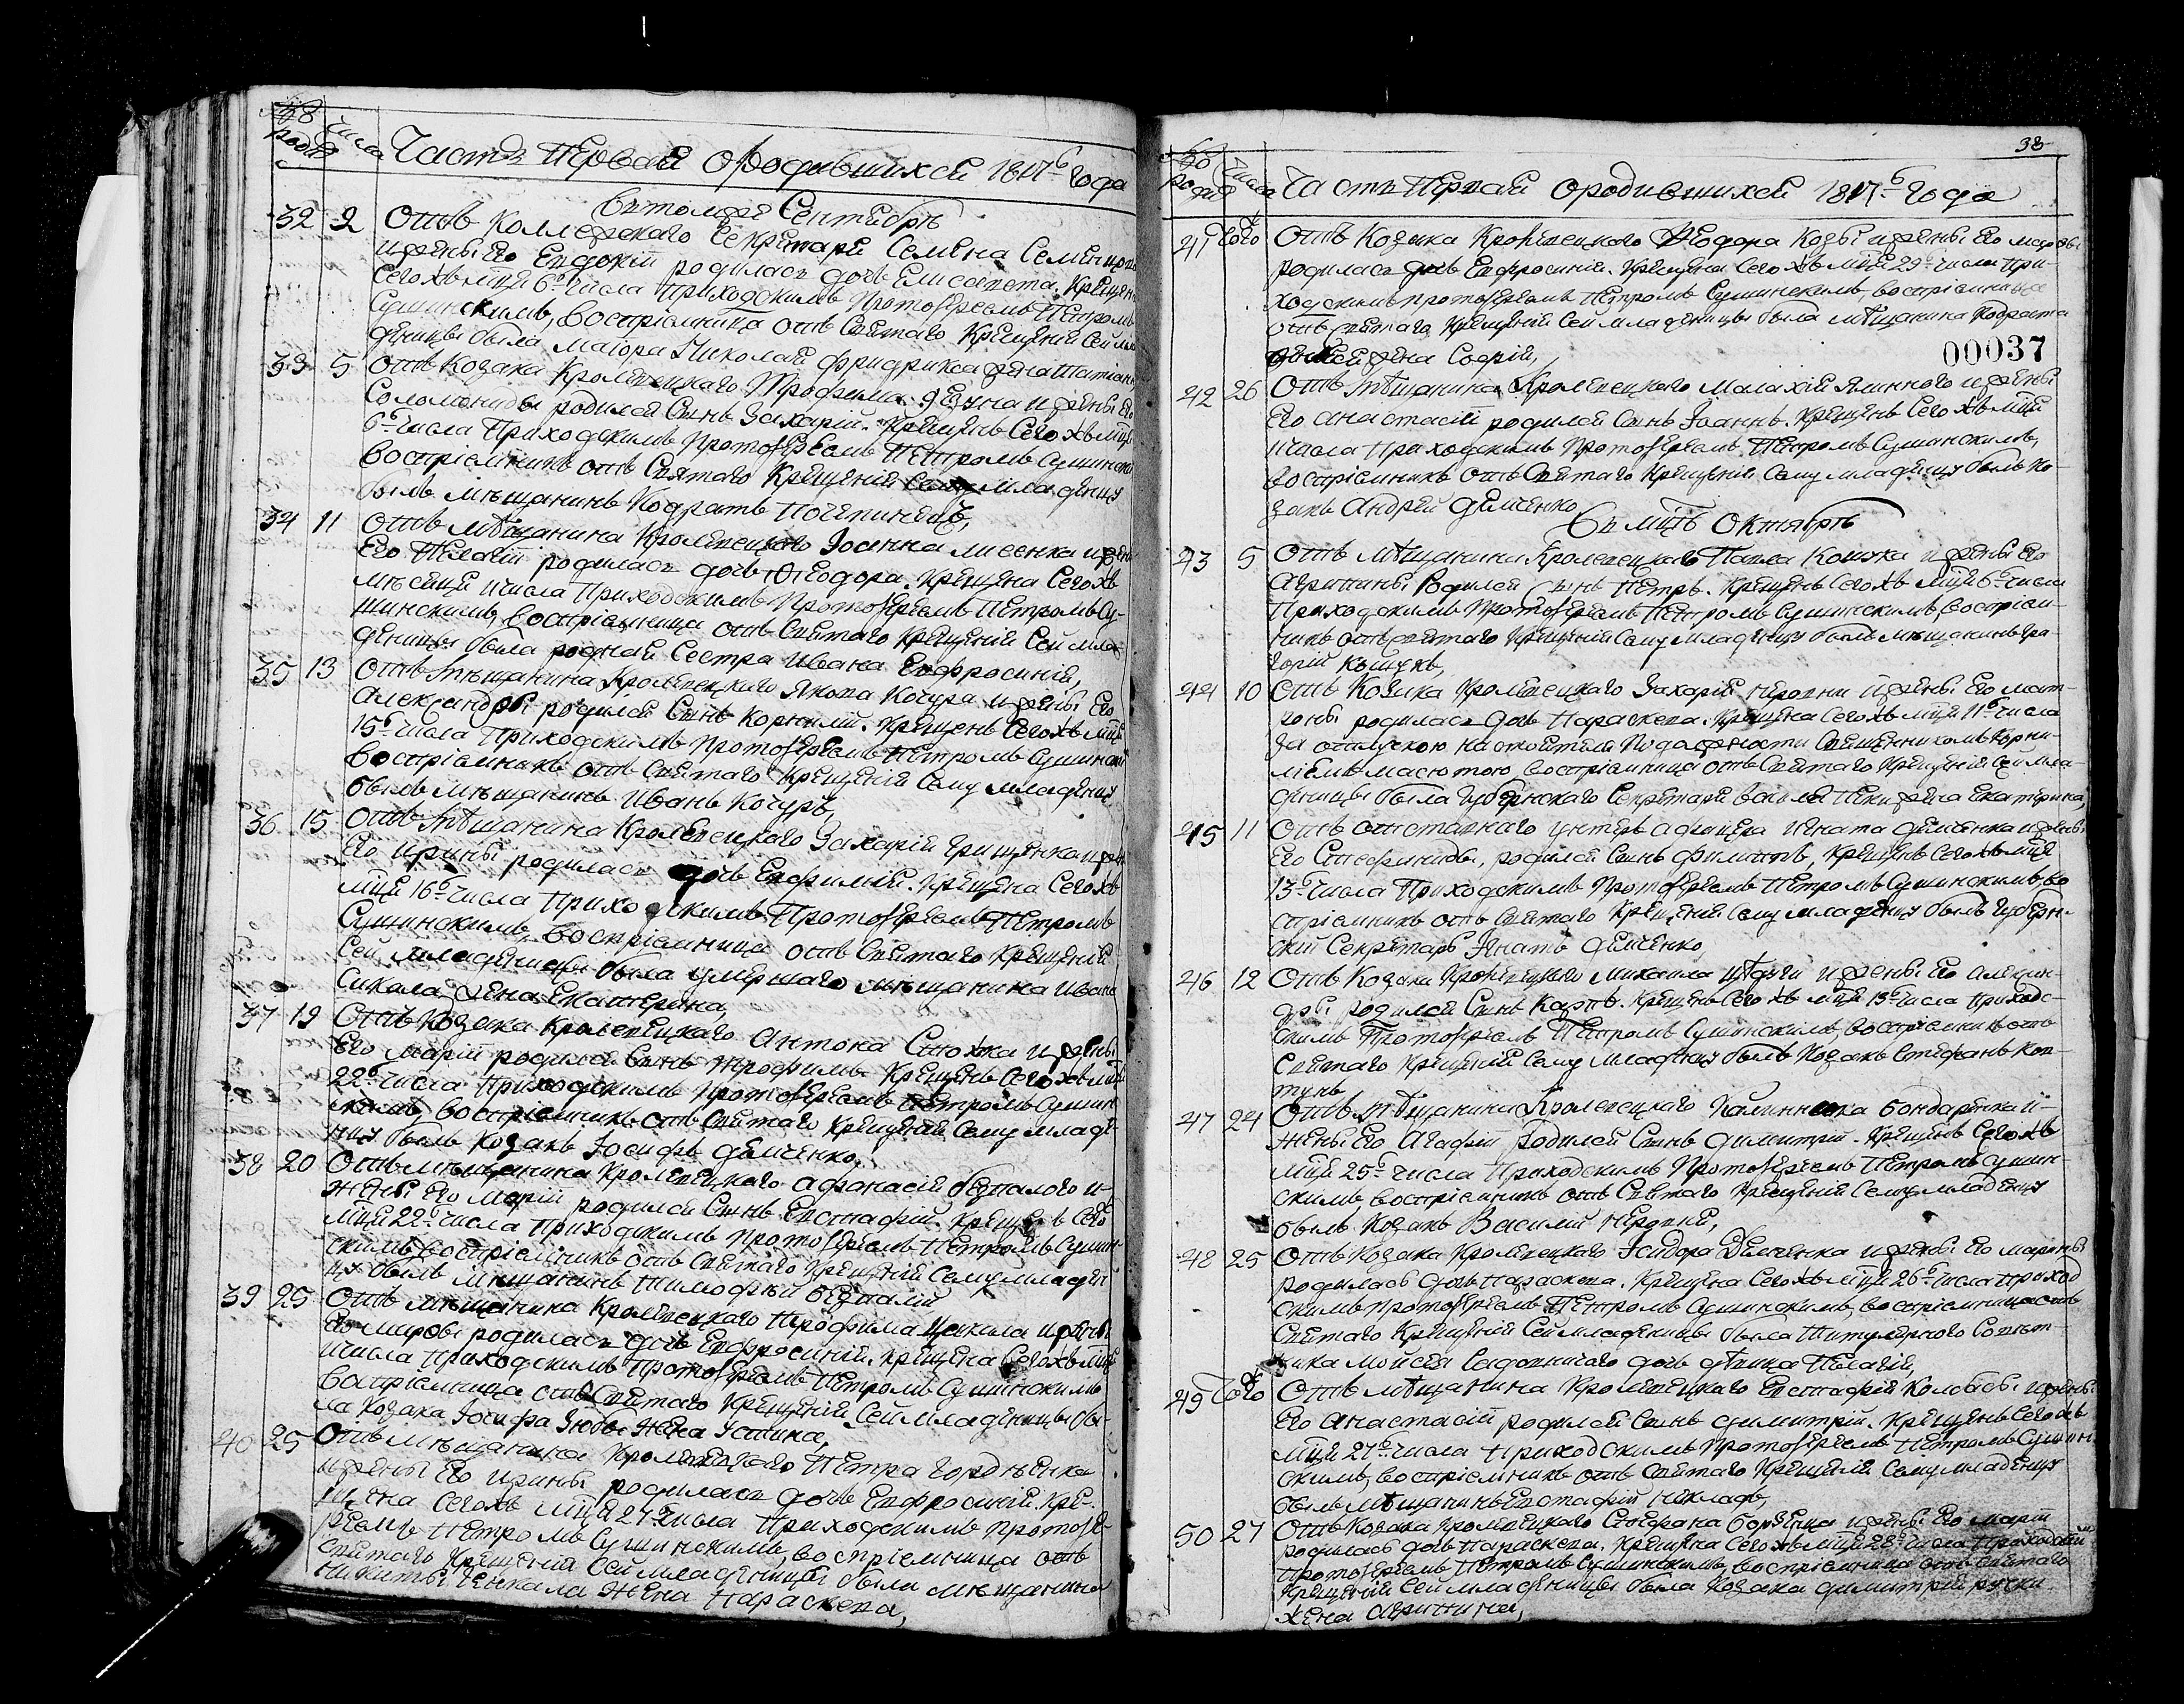 Число
Часть Первая ородившихся 1817го года
Въ томъже Сентябрѣ
32 2 Отъ Коллежскаго Секретаря Семена
и жены Его Евдокіи родилась дочь Елисавета. Крещена
Сегожъ мѣця 6го числа Приходскимъ Протоіереемъ Петромъ
Сушинскимъ, Воспріемница отъ Святаго Крещенія Сей мла
деницы была маіора Николая Фридрикса жена
33 5 Отъ Козака Кролевецкаго Трофима и жены Его
Соломониды родился Сынъ Захарій. Крещенъ Сегожъ мѣця
6го числа Приходскимъ Протоіереемъ Петромъ Сушинским
Воспріемникъ отъ Святаго Крещенія младенцу
былъ мѣщанинъ Кодратъ
34 11 Отъ мѣщанина Кролевецкого Іоанна Лисенка и жены
Его Пелагіи родилась дочь Ѳеодора. Крещена Сегожъ
мѣсяця числа Приходскимъ Протоіереемъ Петромъ Су-
шинскимъ, Воспріемница отъ Святаго Крещенія Сей мла-
деницы была родная Сестра Ивана Евфросинія,
35 13 Отъ мѣщанина Кролевецкого Якова Кочура и жены Его
Александры родился Сынъ Корнилій. Крещенъ Сегожъ мѣця
15го числа Приходскимъ Протоіереемъ Петромъ Сушинским
Воспріемникъ отъ Святаго Крещенія Сему младенцу
былъ мѣщанинъ Иванъ Кочуръ,
36 15 Отъ мѣщанина Кролевецкого Захарія Грищенка и жены
Его Ирины родилась дочь Евфимія. Крещена Сегожъ
мѣця 16го числа Приходскимъ Протоіереемъ Петромъ
Сушинскимъ, Воспріемница отъ Святаго Крещенія
Сей младеницы была умершаго мѣщанина Ивана
жена Екатерина,
37 19 Отъ Козака Кролевецкаго Антона и жены
Его Маріи родился Сынъ Трофимъ. Крещенъ Сегожъ мѣця
22го числа Приходскимъ Протоіереемъ Петромъ Сушин
скимъ, воспріемникъ отъ Святаго Крещенія Сему младе-
нцу былъ козакъ Іосифъ Демченко,
38 20 Отъ мѣщанина Кролевецкаго Афанасія Безпалого и
жены Его Маріи родился Сынъ Евстафій. Крещенъ Сегожъ
мѣця 22го числа Приходскимъ Протоіереемъ Петромъ Сушин-
скимъ, воспріемникъ отъ Святаго Крещенія Сему младен
цу былъ мѣщанинъ Тимофѣй Безпалій
39 25 Отъ мѣщанина Кролевецкаго Трофима и жены
Его родилась дочь Евфросинія. Крещена Сегожъ мѣця
числа Приходскимъ Протоіереемъ Петромъ Сушинскимъ
Воспріемница отъ Святаго Крещенія Сей младеницы бы-
ла Козака Іосифа жена Устина,
40 25 Отъ мѣщанина Кролевецкаго Петра
и жены Его Ирины родилась дочь Евфросинія. Кре-
щена Сегожъ мѣця 27го числа Приходскимъ Протоіе-
реемъ Петромъ Сушинскимъ, воспріемница отъ
Святаго Крещенія Сей младеницы была мѣщанина
Никиты жена Параскева,
38
Число Часть Первая ородившихся 1817го года
41 Того Отъ Козака Кролевецкого Ѳеодора Козы и жены Его
родилась дочь Евфросинія. Крещена Сегожъ мѣця 29го числа При-
ходскимъ Протоіереемъ Петромъ Сушинскимъ, воспріемница
отъ Святаго Крещенія Сей младеницы была мѣщанина Кодрата
жена Софія,
00037
42 26 Отъ мѣщанина Кролевецкого Малахія и жены
Его Анастасіи родился Сынъ Іоаннъ. Крещенъ Сегожъ мѣця
числа Приходскимъ Протоіереемъ Петромъ Сушинскимъ,
воспріемникъ отъ Святаго Крещенія Сему младенцу былъ Ко-
закъ Андрей Демченко
Въ мѣцѣ Октябрѣ
43 5 Отъ мѣщанина Кролевецкаго Павла и жены Его
Агрипины Родился Сынъ Петръ. Крещенъ Сегожъ мѣця 6го числа
Приходскимъ Протоіереемъ Петромъ Сушинскимъ, воспріем-
никъ отъ Святаго Крещенія Сему младенцу былъ мѣщанинъ Гри
горій
44 10 Отъ Козака Кролевецкаго Захарія и жены Его Мат-
роны родилась дочь Параскева. Крещена Сегожъ мѣця 11го числа
Священникомъ Корни-
ліемъ Масютою, воспріемница отъ Святаго Крещенія Сей мла-
деницы была Губернскаго Секретаря жена Екатерина,
45 11 Отъ отставного унтеръ афицера Игната Демченка и жены
Его Стефаниды, родился Сынъ Филиппъ, Крещенъ Сегожъ мѣця
13го числа Приходскимъ Протоіереемъ Петромъ Сушинскимъ, во
спріемникъ отъ Святаго Крещенія Сему младенцу былъ Губерн-
скій Секретарь Игнатъ Демченко,
46 12 Отъ Козака Кролевецкого Михаила и жены Его Алексан-
дры родился Сынъ Карпъ. Крещенъ Сегожъ мѣця 13го числа Приход-
скимъ Протоіереемъ Петромъ Сушинскимъ, воспріемникъ отъ
Святаго Крещенія Сему младенцу былъ Козакъ Стефанъ Ков-
тунъ
47 24 Отъ мѣщанина Кролевецкого Калинника Бондаренка и
жены Его Агафіи родился Сынъ Димитрій. Крещенъ Сегожъ
мѣця 25го числа Приходскимъ Протоіереемъ Петромъ Сушин-
скимъ, воспріемникъ отъ Святаго Крещенія Сему младенцу
былъ Козакъ Василій
48 25 Отъ Козака Кролевецкаго Исидора Демченка и жены Его Марины
родилась дочь Параскева. Крещена Сегожъ мѣця 26го числа Приход
скимъ Протоіереемъ Петромъ Сушинскимъ, воспріемница отъ
Святаго Крещенія Сей младеницы была Титулярного Совѣт-
ника Мойсея дочь дѣвица Пелагія,
49 Того Отъ мѣщанина Кролевецкаго Евстафія и жены
Его Анастасіи родился Сынъ Димитрій. Крещенъ Сегожъ
мѣця 27го числа Приходскимъ Протоіереемъ Петромъ Сушин
скимъ, воспріемникъ отъ Святаго Крещенія Сему младенцу
былъ мѣщанинъ Евстафій
50 27 Отъ Козака Кролевецкаго Стефана и жены Его Маріи
родилась дочь Параскева. Крещена Сегожъ мѣця 28го числа Приходским
Протоіереемъ Петромъ Сушинскимъ, воспріемница отъ Святаго
Крещенія Сей младеницы была Козака Димитрія
жена Агрипина,